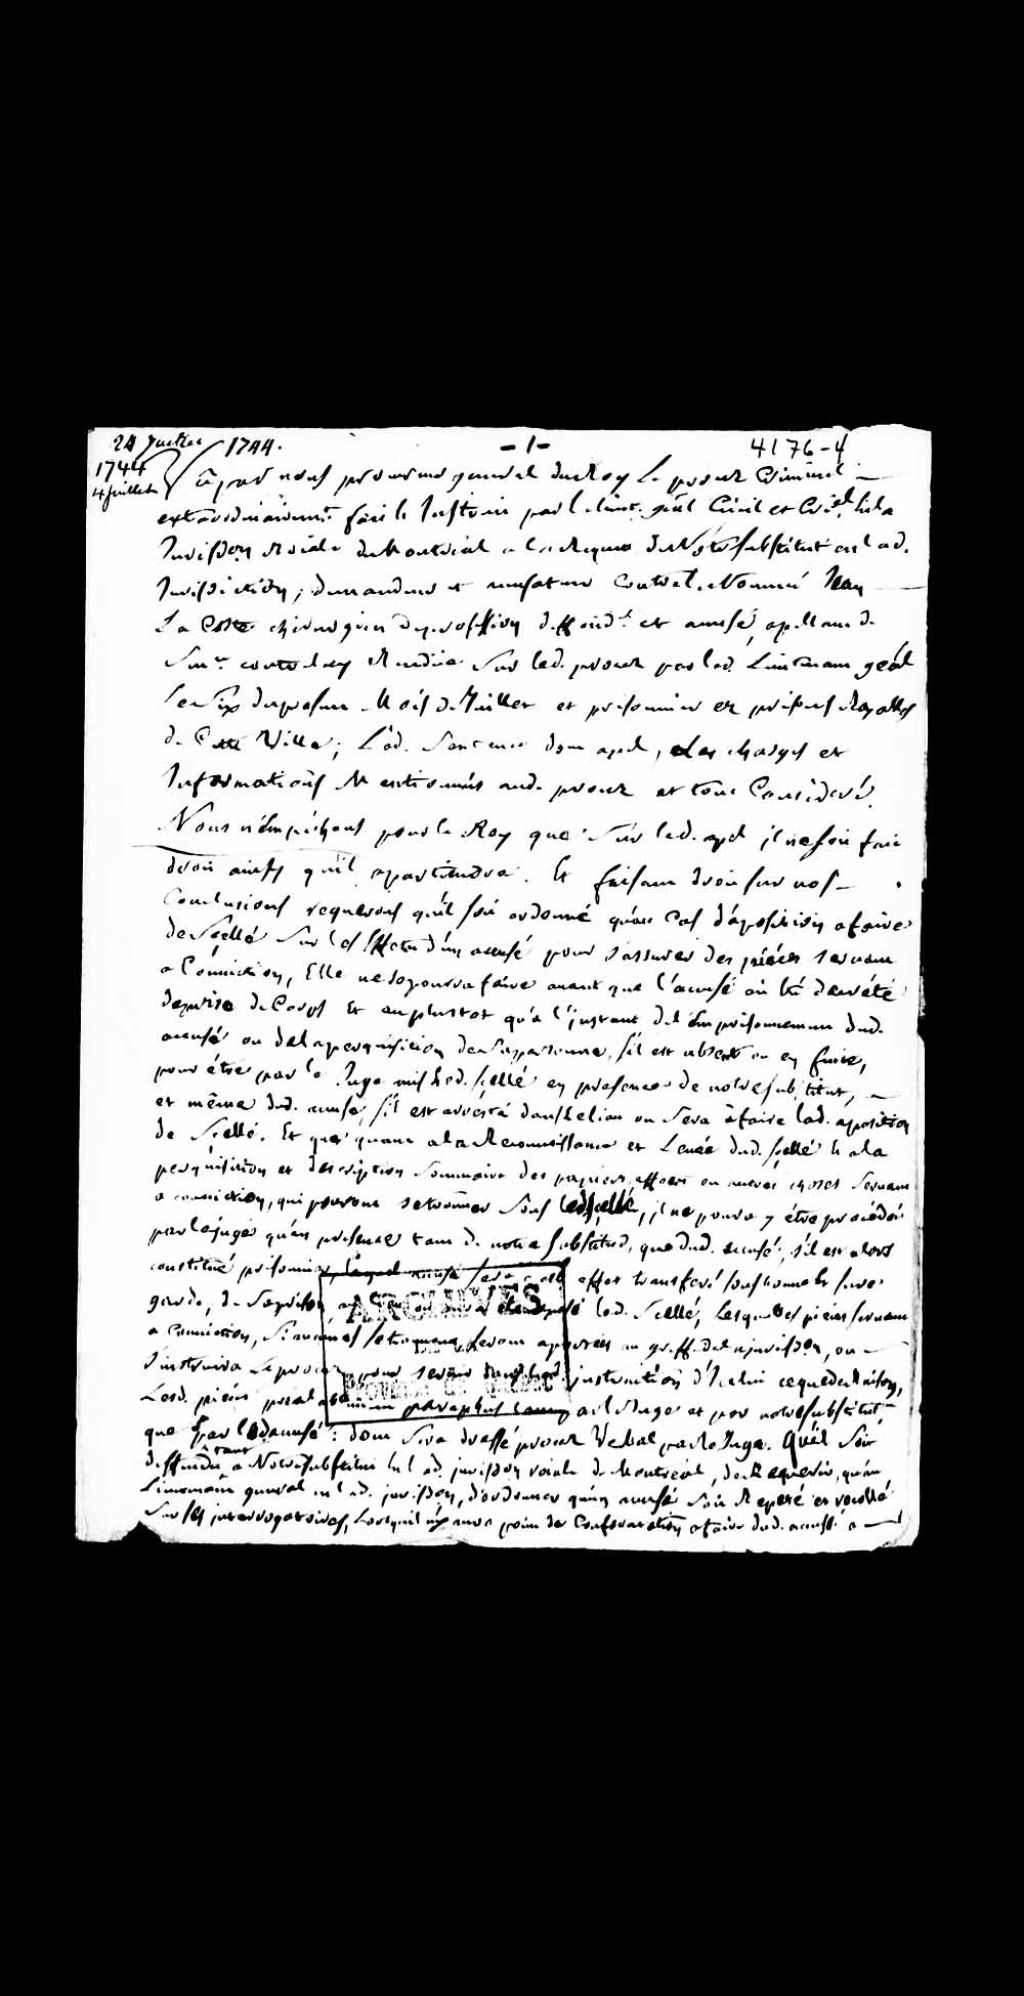 24 Juillet 1744. -1- 4176-4
1744
4 Juillet
Vû par nous procureur general du Roy Le procez Criminel
extraordinairemt. fait et Instruit par le lieut. gñal Civil et Criel. de la
Jurisdon Roiale de Montreal a la Requeste de Notre substitut en lad.
Jurisdiction, demandeur et accusateur contre le Nommé Jean
La Coste chirurgien de profession deffendt. et accusé, apellant de
Sence. contre luy Rendüe sur led. procez par led. Lieutenant gñal
le Six du present Mois de Juillet et prisonnier ez prisons Royalles
de Cette Ville; Lad. Sentence dont apel, Les charges et
Informations Mentionnés aud. procez et tout Considéré.
Nous n'Empêchons pour le Roy que sur led. apel il ne soit fait
droit ainsy qu'il apartiendra. Et faisant droit sur nos
Conclusions requerons qu'il soit ordonné qu'au Cas d'aposition a faire
de Scellé sur les Effets d'un accusé pour s'assurer des piéces servant
a Conviction, Elle ne se poura faire avant que l'accusé ait été decrété
de prise de Corps Et au plustot qu'a l'instant de l'Emprisonnement dud.
accusé ou de la perquisition de sa personne, s'il est absent ou en fuite,
pour être par le Juge mis led. scellé en presence de notre substitut,
et même dud. accusé, s'il est arresté dans le lieu ou sera à faire lad. aposition
de Scellé. Et que quant a la Reconnoissance et Levée dud. scellé et a la
perquisition et description Sommaire des papiers, effets ou autres choses servant
a conviction, qui pouront se trouver sous led. scellé, il ne poura y être procédé
par le juge qu'en presence tant de notre substitut, que dud. accusé, s'il est alors
constitué prisonnier, lequel accusé sera a cet effet transferé sous bonne et sure
garde, de sa prison au lieu ou sera aposé led. Scellé, Lesquelles piéces servant
a Conviction, si aucunes se trouvent, seront aportées au greffe de la jurisdon, ou
s'instruira Le procez, pour servir dans lad. instruction d'Icelui ce que de Raison,
Lesd. piéces prealablement paraphés tant par le Juge et par notre substitut,
que par led. accusé: dont sera dressé procez Verbal par le Juge. Qu'il soit
deffendu à Notre substitut en lad. jurisdon roiale de Montreal, de Requerir, qu'au
étant
Lieutenant general en lad. jurisdon, d'ordonner qu'un accusé soit Repeté et recollé
sur ses interrogatoires, Lorsqu'il n'y aura point de Confrontation a faire dud. accusé a
ARCHIVES